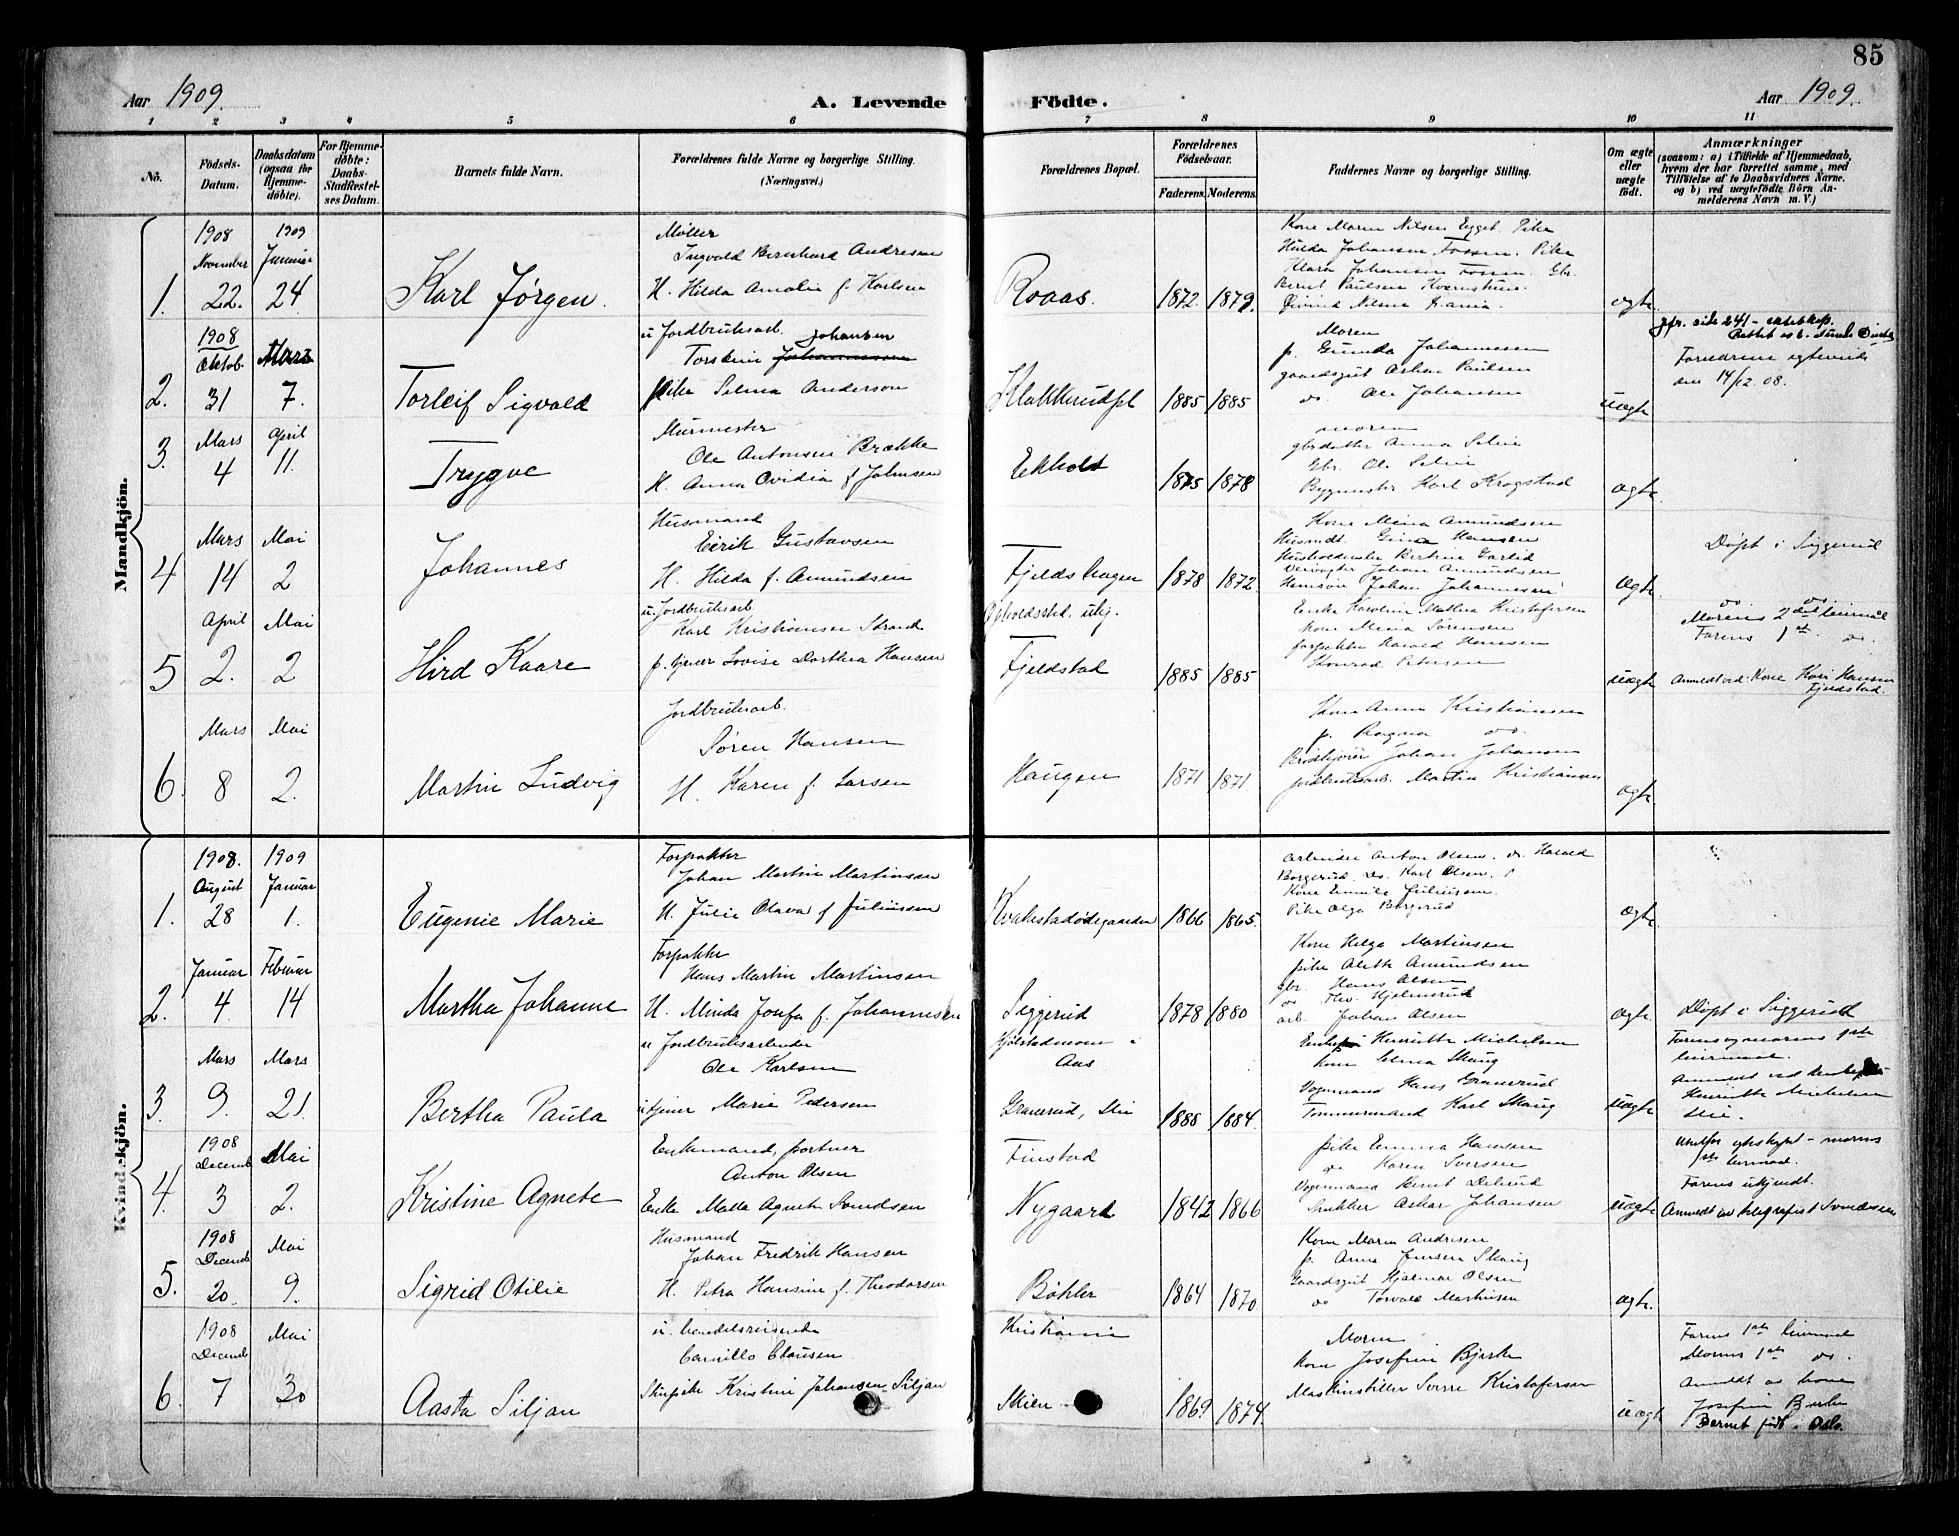 85
Aar 1909.
A. Levende Födte.
Aar 1909.
1 2 3 4 5 6 7 8 8 9 10 11
No.
Födsels-Datum.
Daabsdatum (ogsaa for Hjemmedöbte).
For Hjemmedöbte: Daabs-Stadfæstelses Datum.
Barnets fulde Navn.
Forældrenes fulde Navne og borgerlige Stilling. (Næringsvei.)
Forældrenes Bopæl.
Forældrenes Födselsaar.
Faderens.
Moderens.
Faddernes Navne og borgerlige Stilling.
Om ægte eller uægte födt.
Anmærkninger
(saasom: a) i Tilfælde af Hjemmedaab,
hvem der har forrettet samme, med
Tilföielse af to Daabsvidners Navne,
og b) ved uægtefödte Börn Anmelderens Navn m. V.)
Mandkjön.
1.
1908 November 22.
1909 Januar 24
Karl Jørgen.
Møller
Ingvald Bernhard Andresen
H. Hilda Amalie f. Karlsen
Roaas.
1872. 1879.
Kone Maren Nilsen Egget. Pike
Hilda Johansen Fossen. Pike
Klara Johansen Fossen. Gbr.
Bernt Paulsen
ægte
2.
1908 Oktob. 31
Mars 7.
Torleif Sigvald
u Jordbruksarb. Johansen
Torstein Johannessen
pike Selma Anderson
Klokkerudpl
1885 1885
Moren
p. Gunda Johannesen
gaardsgut Oskar Paulsen
do. Ole Johansen
uægte
jfr. side 241 - ekteskap.
Forældrene egteviede
den 14/12 08.
3.
Mars 4
April 11.
Trygve
Murmester
Ole Antonsen Brække
H. Anna Ovidia f Johnsen
Ekholt
1875 1878
moren
gbrdatter Anna Selvie
Gbr. Ol. Selvie
Bygmester Karl Krogstad
ægte.
4
Mars 14
Mai 2
Johannes
Husmand
Eirik Gustavsen
H. Hilda f. Amundsen
Fjeldshagen
1878 1872
Kone Mina Amundsen
Husmdt. Gina Hansen
Husholderske Bertine Garlid
Johan Amundsen
Johan Johannessen
ægte.
Døpt i Siggerud
5
April 2.
Mai 2
Hird Kaare
u. Jordbruksarb
Karl Kristiansen Strand
p. tjener Lovise Dorthea Hansen
Opholdssted. ukj.
Fjeldstad
1885 1885
Enke Karoline Mathea Kristofersen
Kone Mina Sørensen
forpakter Harald Hansen
Konrad Petersen
uægte
do. do.
Morens 2det leiermaal
Farens 1ste do.
Anmeldt ved Kone Kari Hansen
Fjeldstad.
6.
Mars 8
Mai 2.
Martin Ludvig
Jordbruksarb.
Søren Hansen
H. Karen f. Larsen
Haugen
1871 1871
Kone Anna Kristiansen
p. Ragna do.
Brødkjører Johan Johansen
jordbruksarb. Martin Kristiansen
ægte.
Kvindekjön.
1.
1908. August 28
1909 Januar 1.
Eugenie Marie
Forpakter
Johan Martin Martinsen
H. Julie Olava f Juliussen
Kvakestadødegaarden
1866 1865.
arbeider Anton Olsen. do. Harald
Borgerud. Do. Karl Olsen.
Kone Emilie Juliussen.
Pike Olga Borgerud
ægte.
2.
Januar 4.
Februar 14
Martha Johanne
Forpakter
Hans Martin Martinsen
H. Minda Josefa f. Johannesen
Siggerud
1878 1880
Kone Helga Martinsen
pike Alette Amundsen
gbr. Hans Olsen
do Thv. Hjelmerud
arb. Johan Olsen
ægte
Døpt i Siggerud
3.
Mars 9.
Mars 21.
Bertha Paula
u Jordbruksarbeider
Ole Karlsen
utjener Marie Pedersen
Kjølstadmoen i
Aas
Granerud, Ski
1888 1884.
Henriette Michelsen
Kone Selma Skaug
Vognmand Hans Granerud
Tømmermand Karl Skaug
uægte
Farens og morens 1ste
leiermaal.
Henriette Michelsen
Ski.
4.
1908 Decemb 3
Mai 2.
Kristine Agnete
Enkemand, portner
Anton Olsen
Enke Matta Agnete Svendsen
Finstad
Nygaard
1842 1866
pike Emma Hansen
do Karen Iversen
Vognmand Bernt
Oskar Johansen
uægte
Farens ukjendt.
Anmeldt av telegrafist Svendsen
5.
1908 Decemb 20.
Mai 9.
Sigrid Otilie
Husmand
Johan Fredrik Hansen
H. Petra Hansine f. Theodorsen
Bøhler
1864 1870
Kone Maren Andresen
p. Anna Jensen Skaug
Gaardsgut Hjalmar Olsen
do Torvald Martinsen
ægte.
6.
1908 Decemb 7
Mai 30
Aasta Siljan
u. handelsreisende
Camillo Clausen
Skupike Kristine Johansen Siljan
Kristiania
Skien
1869 1874.
Moren
Kone Josefine Bjerke
Maskinstiller Sverre Kristofersen
uægte
Farens 1ste leiermaal
Morens 1ste do.
Anmeldt av kone
Josefine
Barnet født i Oslo.